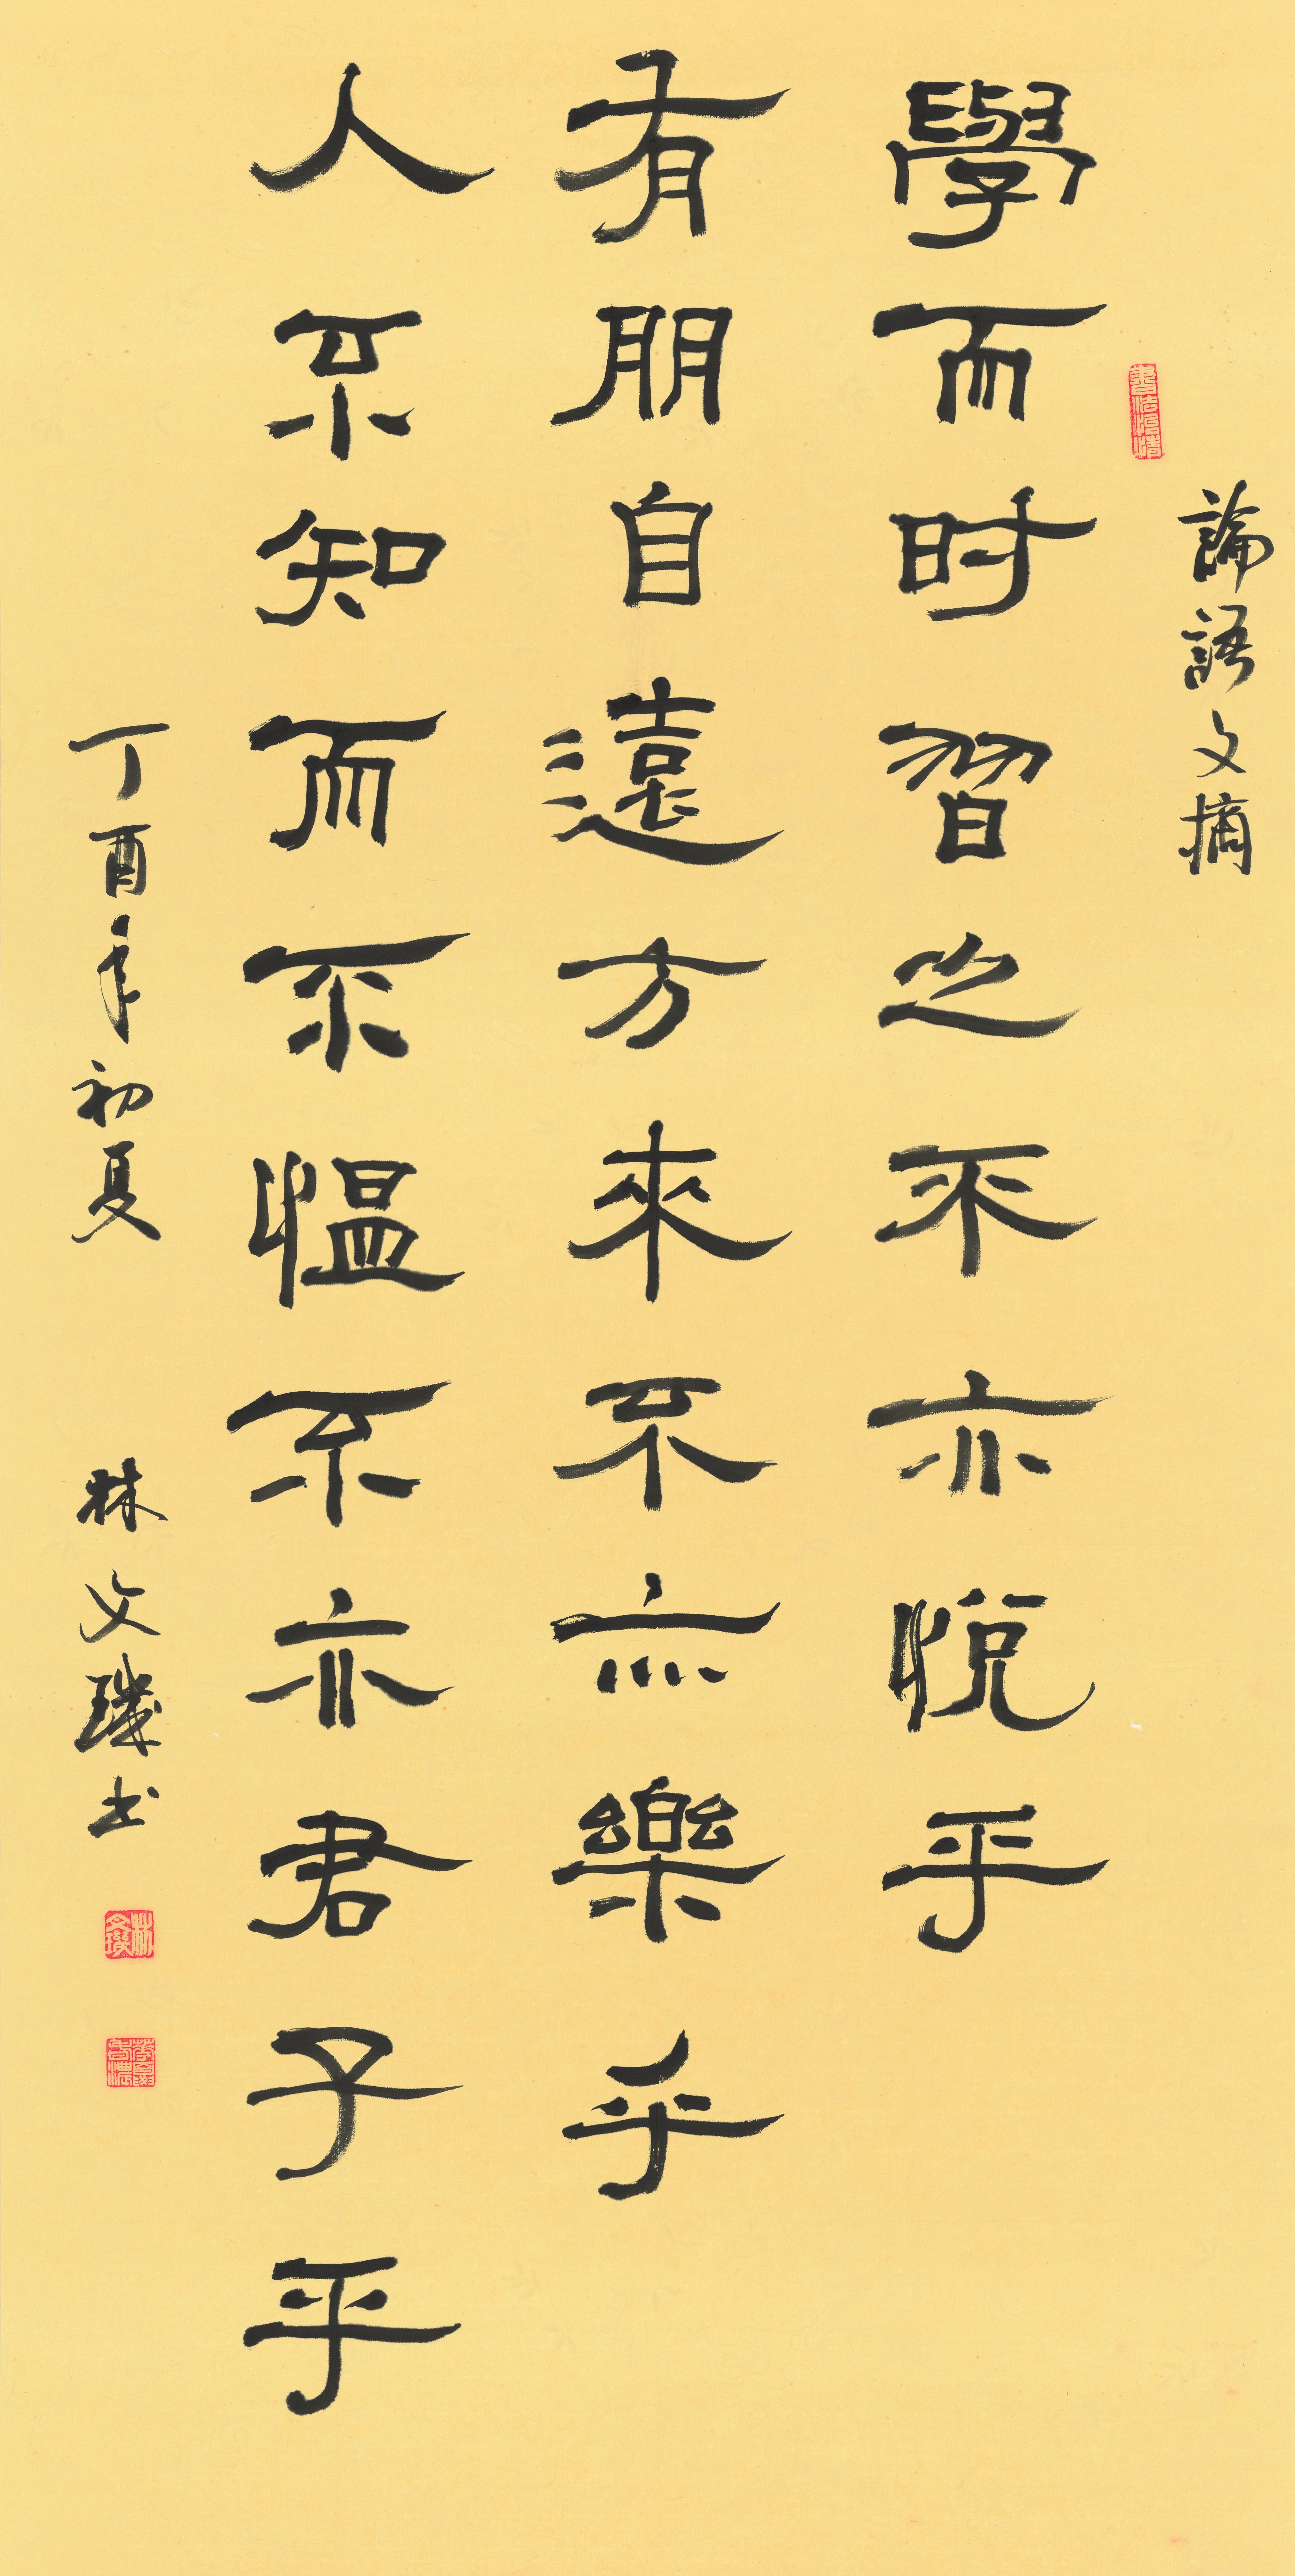 論語文摘
學而时習之不亦悅乎
有朋自遠方來不亦樂乎
人不知而不愠不亦君子乎
丁酉年初夏
林文璣书